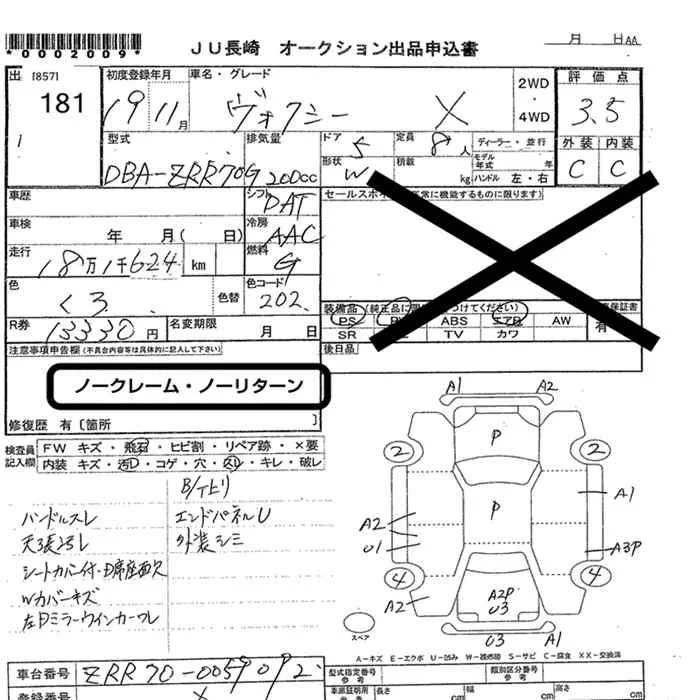 *0002009*
JU長崎 オークション出品申込書
月 日 AA
出 [857]
181
初度登録年月
19 11月
車名・グレード
ヴォクシー X
2WD
・
4WD
評価点
3.5
外装 内装
C C
型式
DBA-ZRR70G
排気量
200cc
ドア 5
定員 8人
ディーラー・並行
形状 W
積載 kg
モデル年式 年
ハンドル 左・右
車歴
シフト DAT
車検 年 月( 日)
冷房 AAC
走行 18万1千624 km
燃料 G
色 くろ 色替
色コード 202
R券 13330円
名変期限 月 日
装備品 (純正品に
つけてください)
PS ABS エアB AW
SR TV カワ
保証書
有
注意事項申告欄 (不具合内容等は具体的に記入して下さい)
後日品
ノークレーム・ノーリターン
修復歴 有〔箇所 〕
検査員記入欄
FW キズ・飛石・ヒビ割・リペア跡・×要
内装 キズ・汚れ・コゲ・穴・スレ・キレ・破レ
ハンドルスレ
エンドパネルU
外装シミ
Wカバーキズ
左Dミラーウインカーワレ
A1 A2
P
2 2
P
A1
A2
U1
A3P
4 4
A2
A2P
U3
スペア
U3 A1
A-キズ E-エクボ U-凹み W-補修跡 S-サビ C-腐食 XX-交換済
車台番号 ZRR70-0059092
型式指定番号
参考
類別区分番号
参考
長さ cm
幅 cm
高さ cm